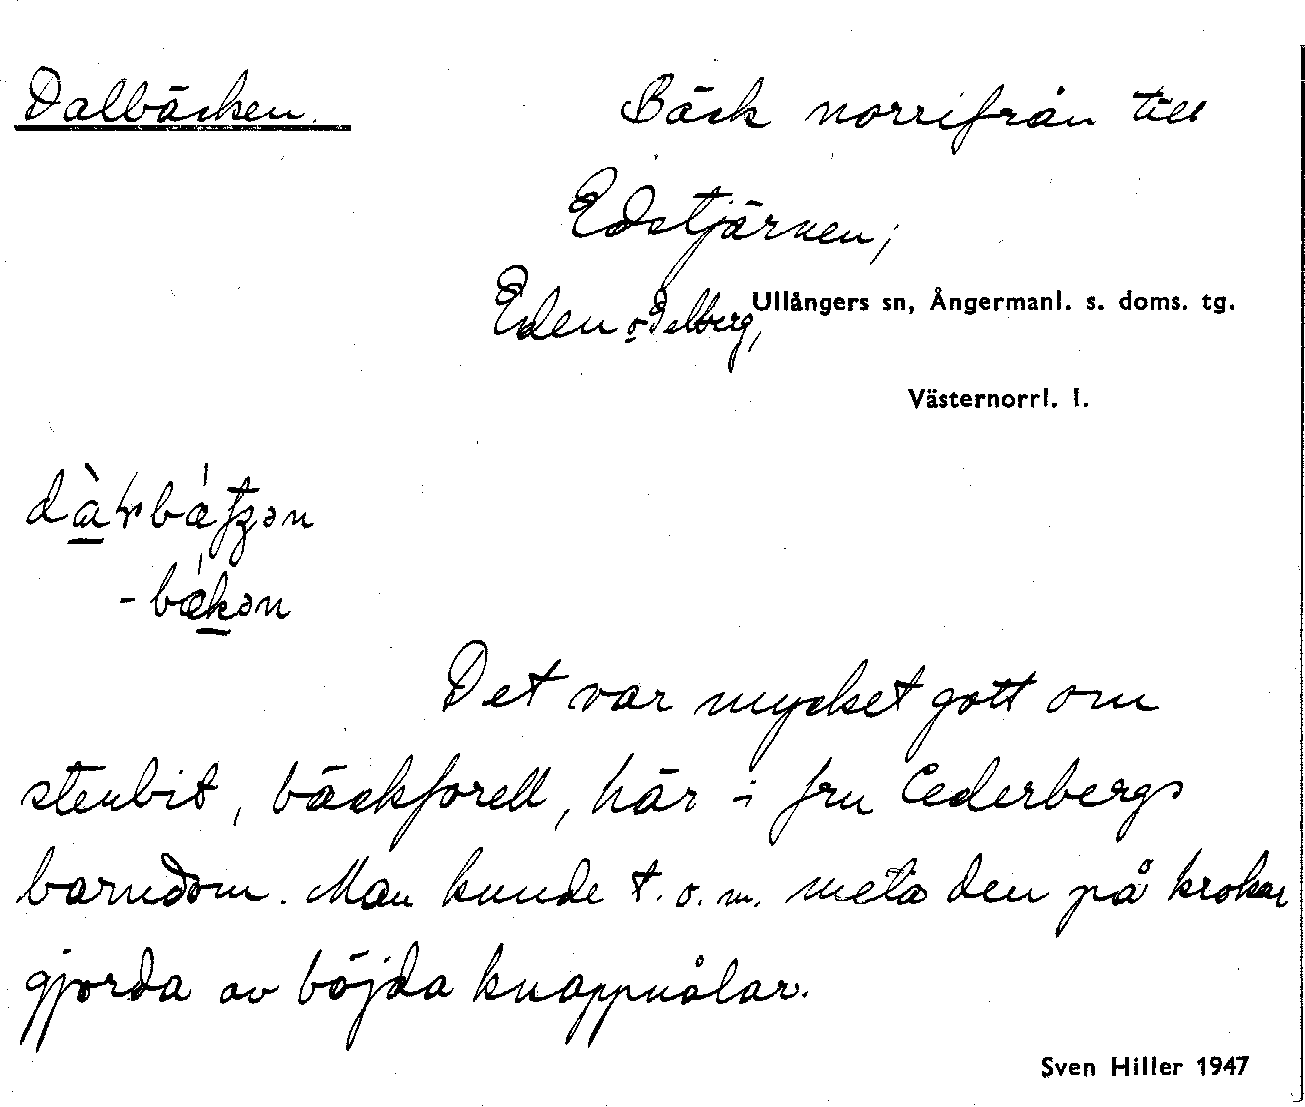 Dalbäcken. Bäck norrifrån till
Edstjärnen;
Eden o. Selberg, Ullångers sn, Ångermanl. s. doms. tg.
Västernorrl. l.
-bækən
Det var mycket gott om
stenbit, bäckforell, här i fru Cederbergs
barndom. Man kunde t.o.m. meta den på krokar
gjorda av böjda knappnålar.
Sven Hiller 1947